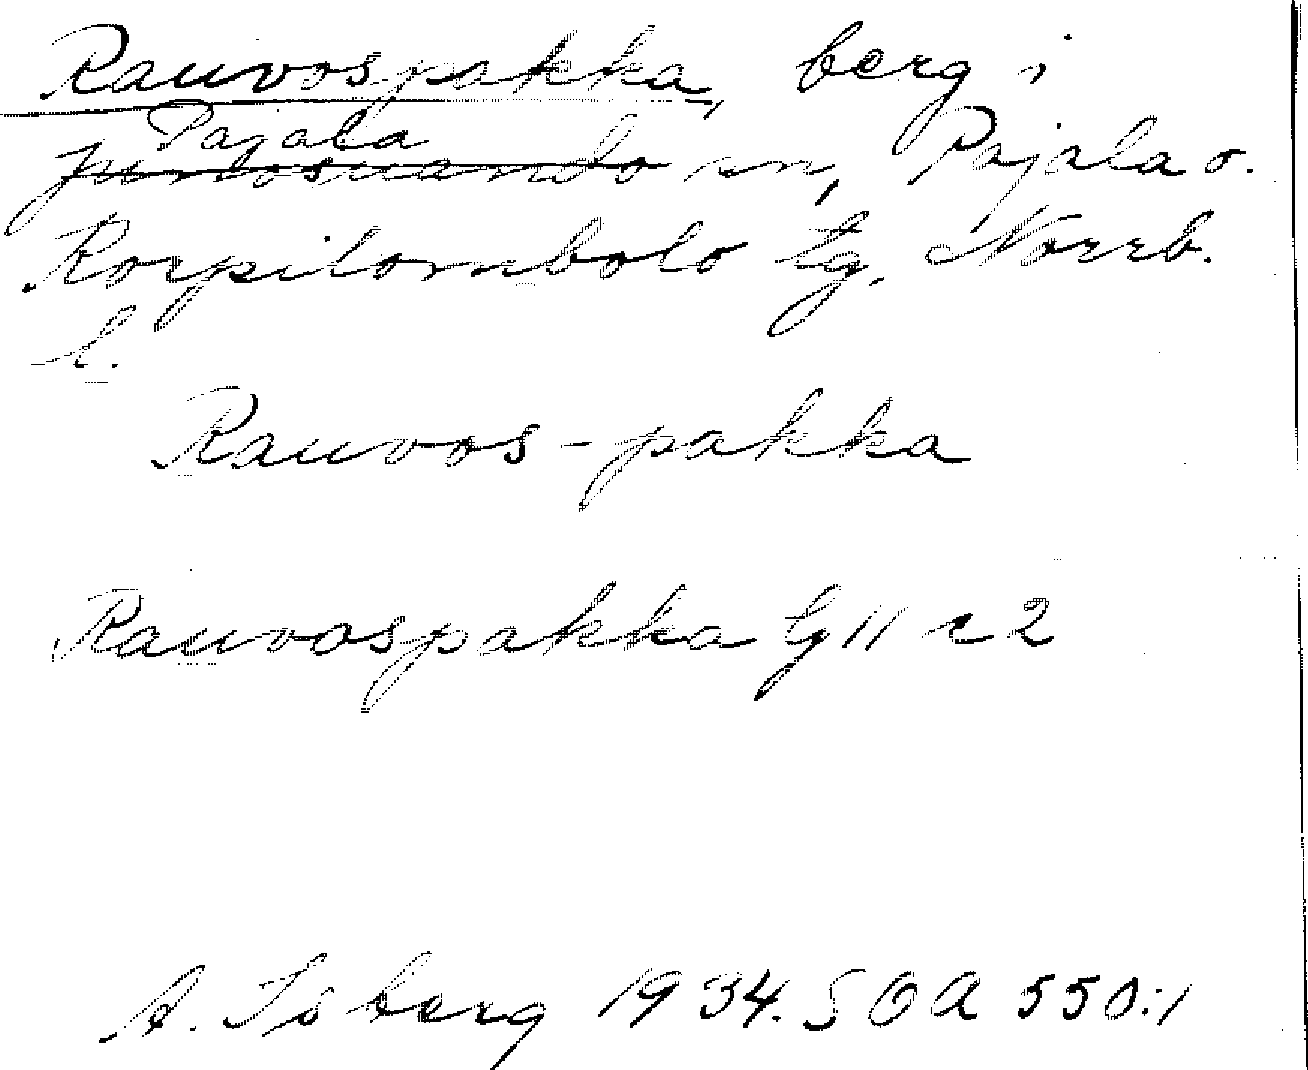 Rauvospakka, berg i
Pajala
junosuando sn, Pajala o.
Korpilombolo tg. Norrb.
l.
Rauvos-pakka
Rauvospakka G11 c2
A. Isberg 1934. SOA 550:1